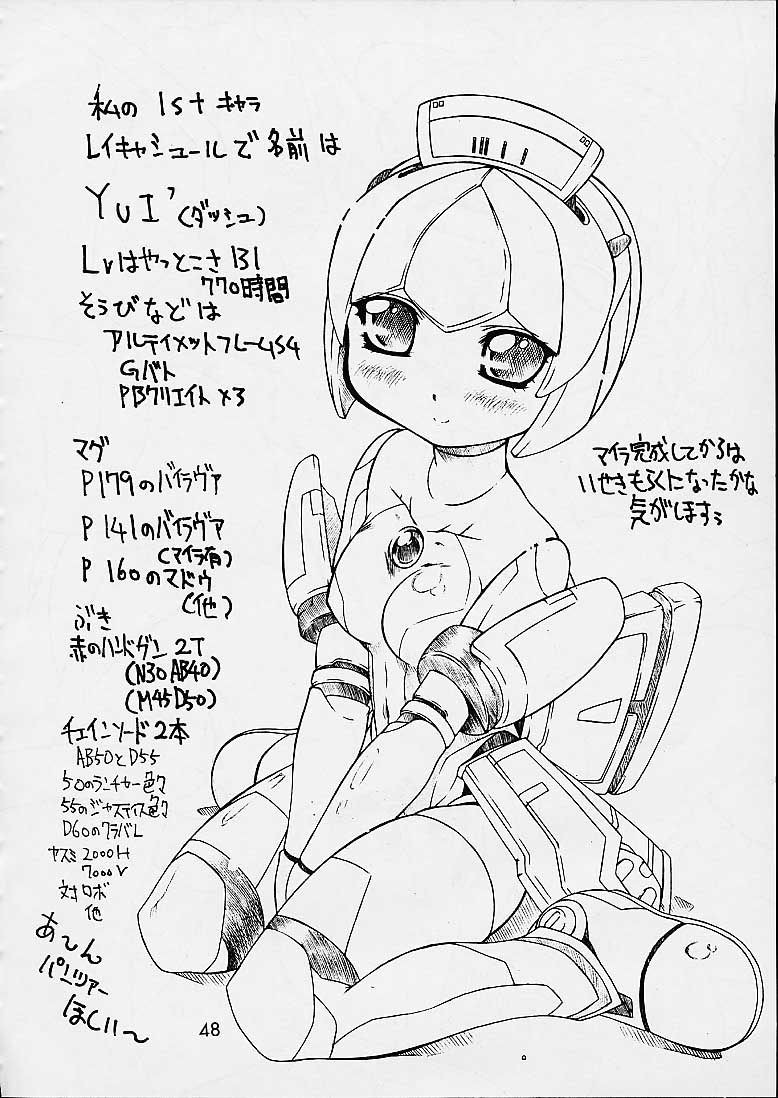 私の 1st キャラ
レイキャシュールで 名前は
YUI'(ダッシュ)
Lvはやっとこさ 131
770時間
そうびなどは
アルティメットフレームS4
Gバト
PBクリエイト×3
マグ
P179のバイラヴァ
P141のバイラヴァ
(マイラ有)
P160のマドウ
(他)
ぶき
赤のハンドガン 2T
(N30 AB40)
(M45 D50)
チェインソード 2本
AB50とD55
50のランチャー色々
55のジャスティス色々
D60のクラバL
ヤスミ2000H
7000V
対ロボ
他
あーん
パンツァー
ほしいー
マイラ完成してからは
いせきもらくになったかな
気がほすぅ
48